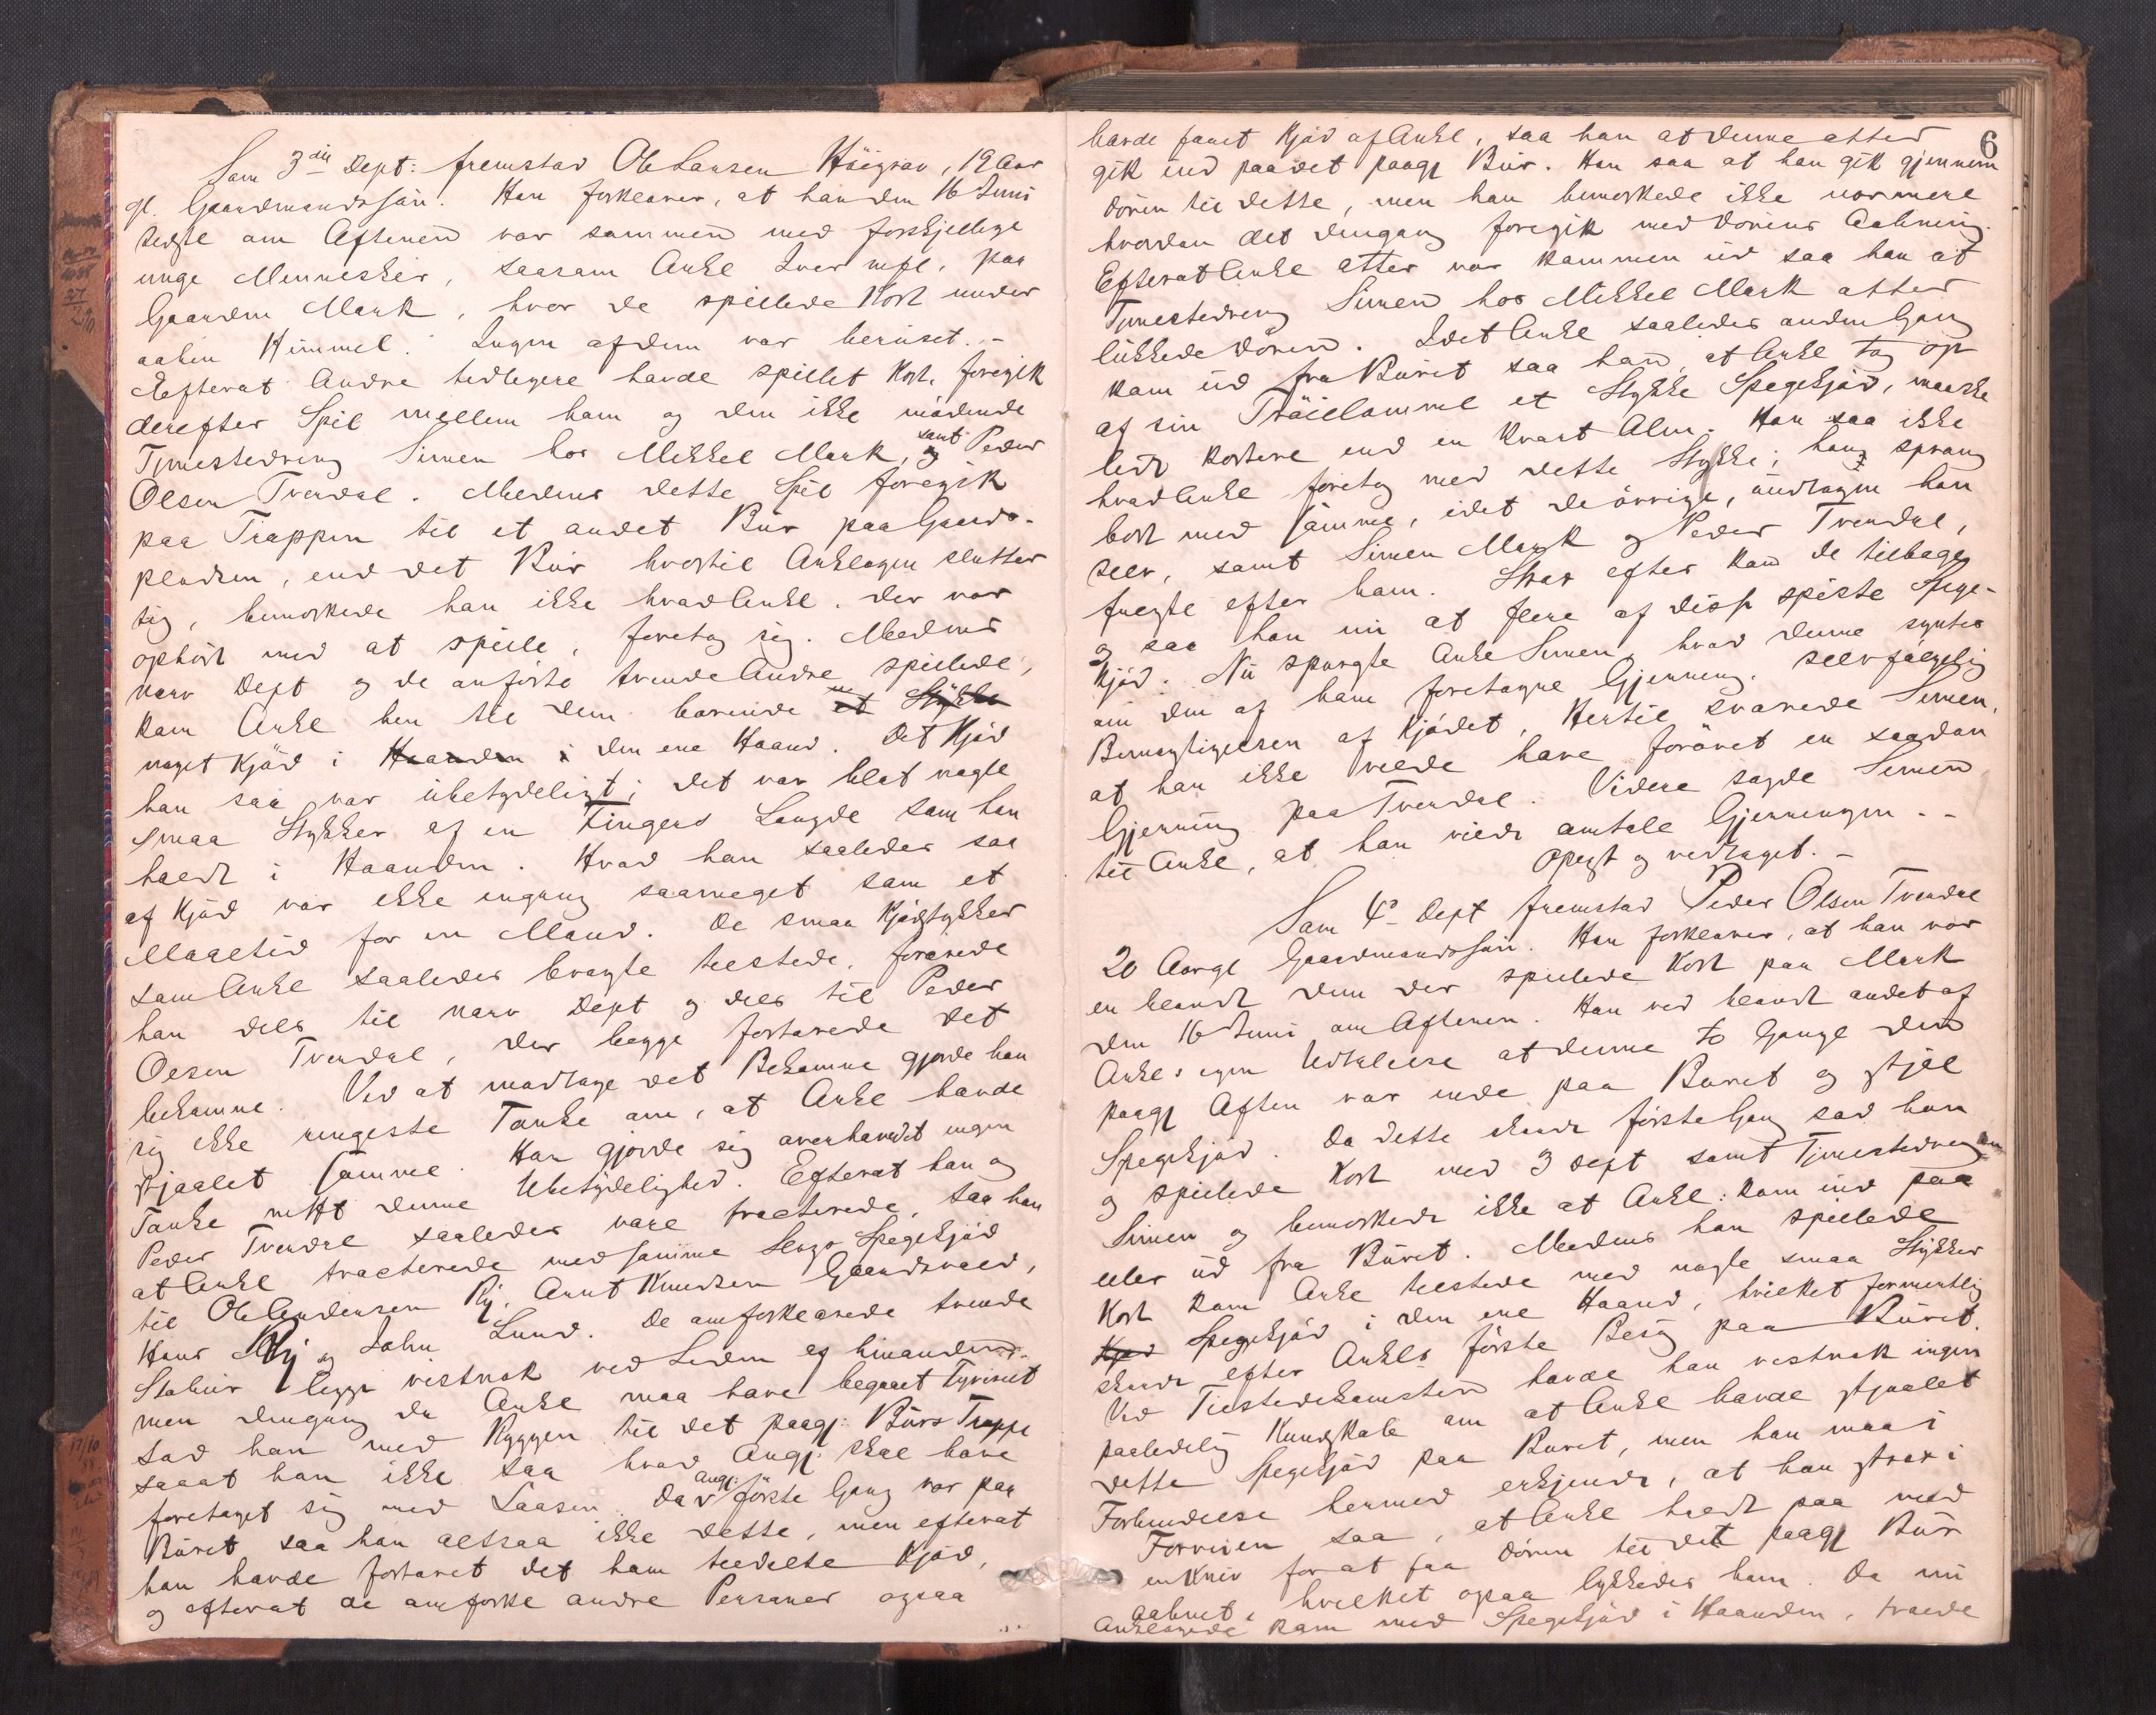 Som 3die Dept: fremstod Ole Larsen Höigrav, 19 Aar
gl. Gaardmandssön. Han forklarer, at han den 16 Juni
sidste om Aftenen var sammen med forskjellige
unge Mennesker, saasom Ankl Iver mfl. paa
Gaarden Mork, hvor de spillede Kort under
aaben Himmel. Ingen af dem var beruset. -
Efterat Andre tidligere havde spillet Kort, foregik
derefter Spil mellem ham og den ikke mödende
Tjenestedreng Simen hos Mikkel Mork, og samt Peder
Olsen Tvendal. Medens dette Spil foregik
paa Trappen til et andet Bur paa Gaards-
pladsen, end det Bur hvortil Anklagen slutter
sig, bemærkede han ikke hvad Ankl. der var
ophört med at spille, foretog sig. Medens
nærv Dept og de anförte tvende Andre spillede,
kom Ankl hen til dem bærende et Stykke
noget Kjöd i Haanden i den ene Haand. Det Kjöd
han saa var ubetydeligt; det var blot nogle
smaa Stykker af en Fingers Længde som han
holdt i Haanden. Hvad han saaledes saa
af Kjöd var ikke engang saameget som et
Maaltid for en Mand. De smaa Kjödstykker
som Ankl saaledes bragte tilstede, forærede
han dels til nærv Dept og dels til Peder
Olsen Tvendal, der begge fortærede det
bekomne. Ved at modtage det Bekomne gjorde han
sig ikke ringeste Tanke om, at Ankl havde
stjaalet samme. Han gjorde sig overhovedet ingen
Tanke mht denne Ubetydelighed. Efterat han og
Peder Tvendal saaledes vare tracterede, saa han
at Ankl tracterede med samme Slags Spegekjöd
til Ole Andersen Ry, Arnt Knudsen Gaardsvold,
Hans Ry og John Lund. De omforklarede tvende
Stabur ligge vistnok ved Siden af hinanden
men dengang da Ankl maa have begaaet Tyveriet
sad han med Ryggen til det paagj: Burs Trappe
saaat han ikke saa hvad Angj: skal have
foretaget sig med Laasen. Da Angj: förste Gang var paa
Buret saa han altsaa ikke dette, men efterat
han havde fortæret det ham tildelte Kjöd,
og efterat de omforkl andre Personer ogsaa
6
havde faaet Kjöd af Ankl, saa han at denne atter
gik ind paa det paagj Bur. Han saa at han gik gjennem
Dören til dette, men han bemærkede ikke nærmere
hvordan det dengang foregik med Dörens Aabning.
Efterat Ankl atter var kommen ud saa han at
Tjenestedreng Simen hos Mikkel Mork atter
lukkede Dören. Idet Ankl saaledes anden Gang
kom ud fra Buret saa han, at Ankl tog op
af sin Tröielomme et Stykke Spegekjöd, maaske
lidt kortere end en Kvart Alen. Han saa ikke
hvad Ankl foretog med dette Stykke; han sprang
bort med samme, idet de övrige, undtagen han
selv, samt Simen Mork og Peder Tvendal,
fulgte efter ham. Strax efter kom de tilbage
og saa han nu at flere af disse spiste Spege-
kjöd. Nu spurgte Ankl Simen, hvad denne syntes
om den af ham foretagne Gjerning. selvfölgelig
Bemægtigelsen af Kjödet, Hertil svarede Simen,
at han ikke vilde have forövet en saadan
Gjerning paa Tvendal. Videre sagde Simen
til Ankl, at han vilde omtale Gjerningen. -
Oplæst og vedtaget. -
Som 4de Dept fremstod Peder Olsen Tvendal
20 Aar gl Gaardmandssön. Han forklarer, at han var
en blandt dem der spillede Kort paa Mork
den 16 Juni om Aftenen. Han ved blandt andet af
Ankl's egen Udtalelse at denne to Gange den
paagj Aften var inde paa Buret og stjal
Spegekjöd. Da dette skede förste Gang sad han
og spillede Kort med 3 Dept samt Tjenestedreng
Simen og bemærkede ikke at Ankl: kom ind paa
eller ud fra Buret. Medens han spillede
Kort kom Ankl tilstede med nogle smaa Stykker
Kjöd Spegekjöd i den ene Haand, hvilket formentlig
skede efter Ankls förste Besög paa Buret.
Ved Tilstedekomsten havde han vistnok ingen
paalidelig Kundskab om at Ankl havde stjaalet
dette Spegekjöd paa Buret, men han maa i
Forbindelse hermed erkjende, at han strax i
Forveien saa, at Ankl holdt paa med
en Kniv for at faa Dören til det paagj Bur
aabnet, hvilket ogsaa lykkedes ham. Da nu
Anklagede kom med Spegekjöd i Haanden, troede